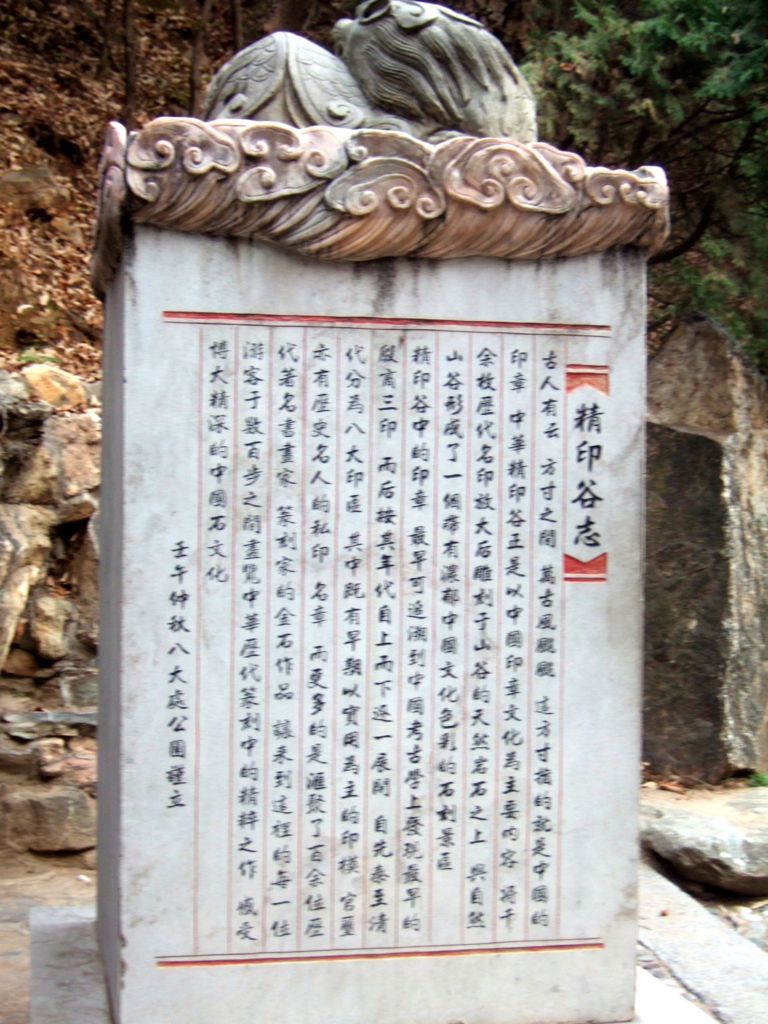 精印谷志
古人有云 方寸之間 萬古風飈飈 這方寸指的就是中國的
印章 中華精印谷正是以中國印章文化為主要内容 将千
余枚歷代名印放大后雕刻于山谷的天然岩石之上 與自然
山谷形成了一個擁有濃郁中國文化色彩的石刻景區
精印谷中的印章 最早可追溯到中國考古學上發現最早的
殷商三印 而后按其年代自上而下逐一展開 自先秦至清
代分為八大印區 其中既有早期以實用為主的印模 官璽
亦有歷史名人的私印 名章 而更多的是滙聚了百余位歷
代著名書畫家 篆刻家的金石作品 讓来到這裡的每一位
游客于數百步之間盡覽中華歷代篆刻中的精粹之作 感受
博大精深的中國石文化
壬午仲秋八大處公園謹立